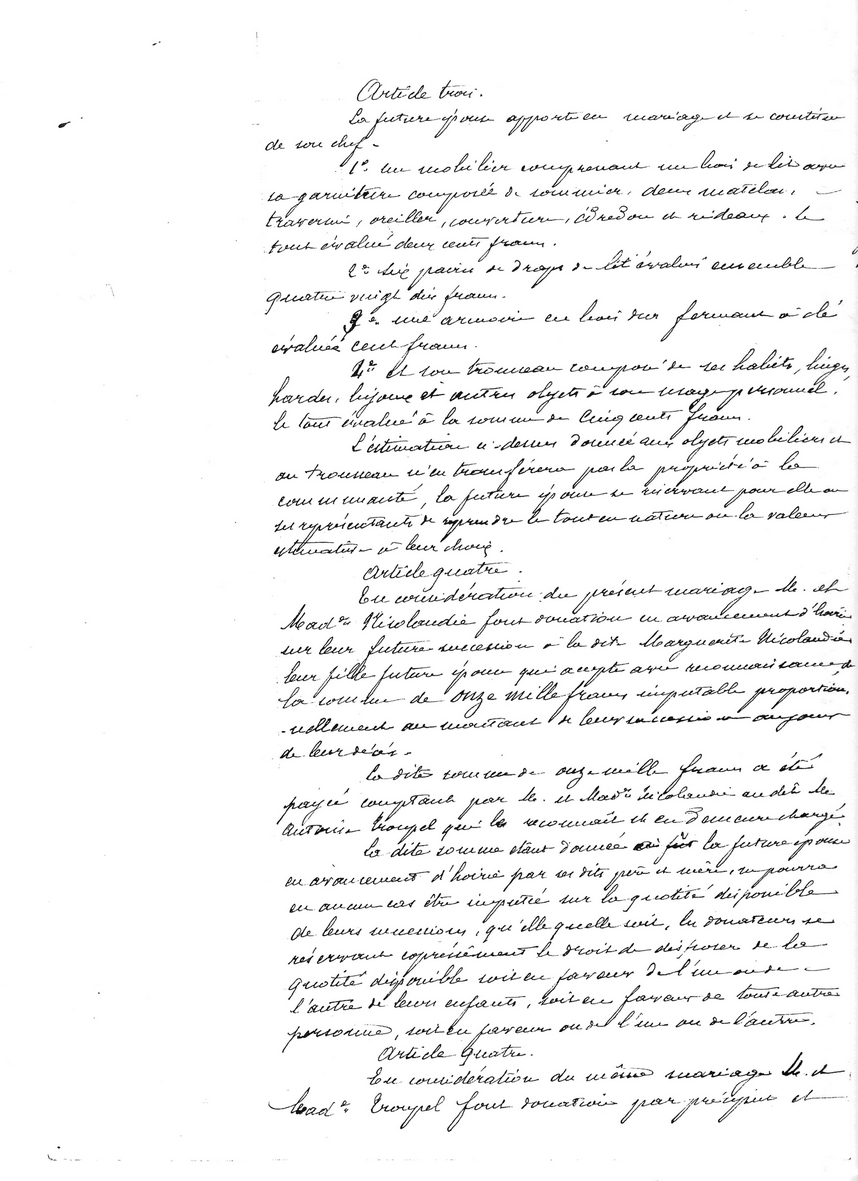 Article trois.
La future épouse apporte en mariage et se constitue
de son chef -
1° un mobilier comprenant un bois de lit avec
sa garniture composée de sommier, deux matelas,
traversin, oreiller, couverture, édredon et rideaux. le
tout évalué deux cents francs.
2° six paires de draps de lit évalués ensemble
quatre vingt dix francs.
3° une armoire en bois dur fermant à clé
évaluée cent francs.
4° et son trousseau composé de ses habits, linges,
hardes, bijoux et autres objets à son usage personnel,
le tout évalué à la somme de cinq cents francs.
L'estimation ci-dessus donnée aux objets mobiliers et
au trousseau n'en transfèrera pas la propriété à la
communauté, la future épouse se réservant pour elle ou
ses représentants de reprendre le tout en nature ou la valeur
estimative à leur choix.
Article quatre.
En considération du présent mariage M. et
Madᵉ Nicolaudie font donation en avancement d'hoirie
sur leur future succession à la dite Marguerite Nicolaudie
leur fille future épouse qui accepte avec reconnaissance, de
la somme de onze mille francs imputable proportion
-nellement au montant de leurs successions au jour
de leur décès -
La dite somme de onze mille francs a été
payée comptant par M. et Madᵉ Nicolaudie au dit M.
Antoine Troupel qui le reconnaît et en demeure chargé.
La dite somme étant donnée à la future épouse
en avancement d'hoirie par ses dits père et mère, ne pourra
en aucun cas être imputée sur la quotité disponible
de leurs successions, qu'elle quelle soit, les donateurs se
réservant expressément le droit de disposer de la
quotité disponible soit en faveur de l'un ou de
l'autre de leurs enfants, soit en faveur de toute autre
personne, soit en faveur ou de l'un ou de l'autre.
Article quatre.
En considération du même mariage M. et
Madᵉ Troupel font donation par préciput et